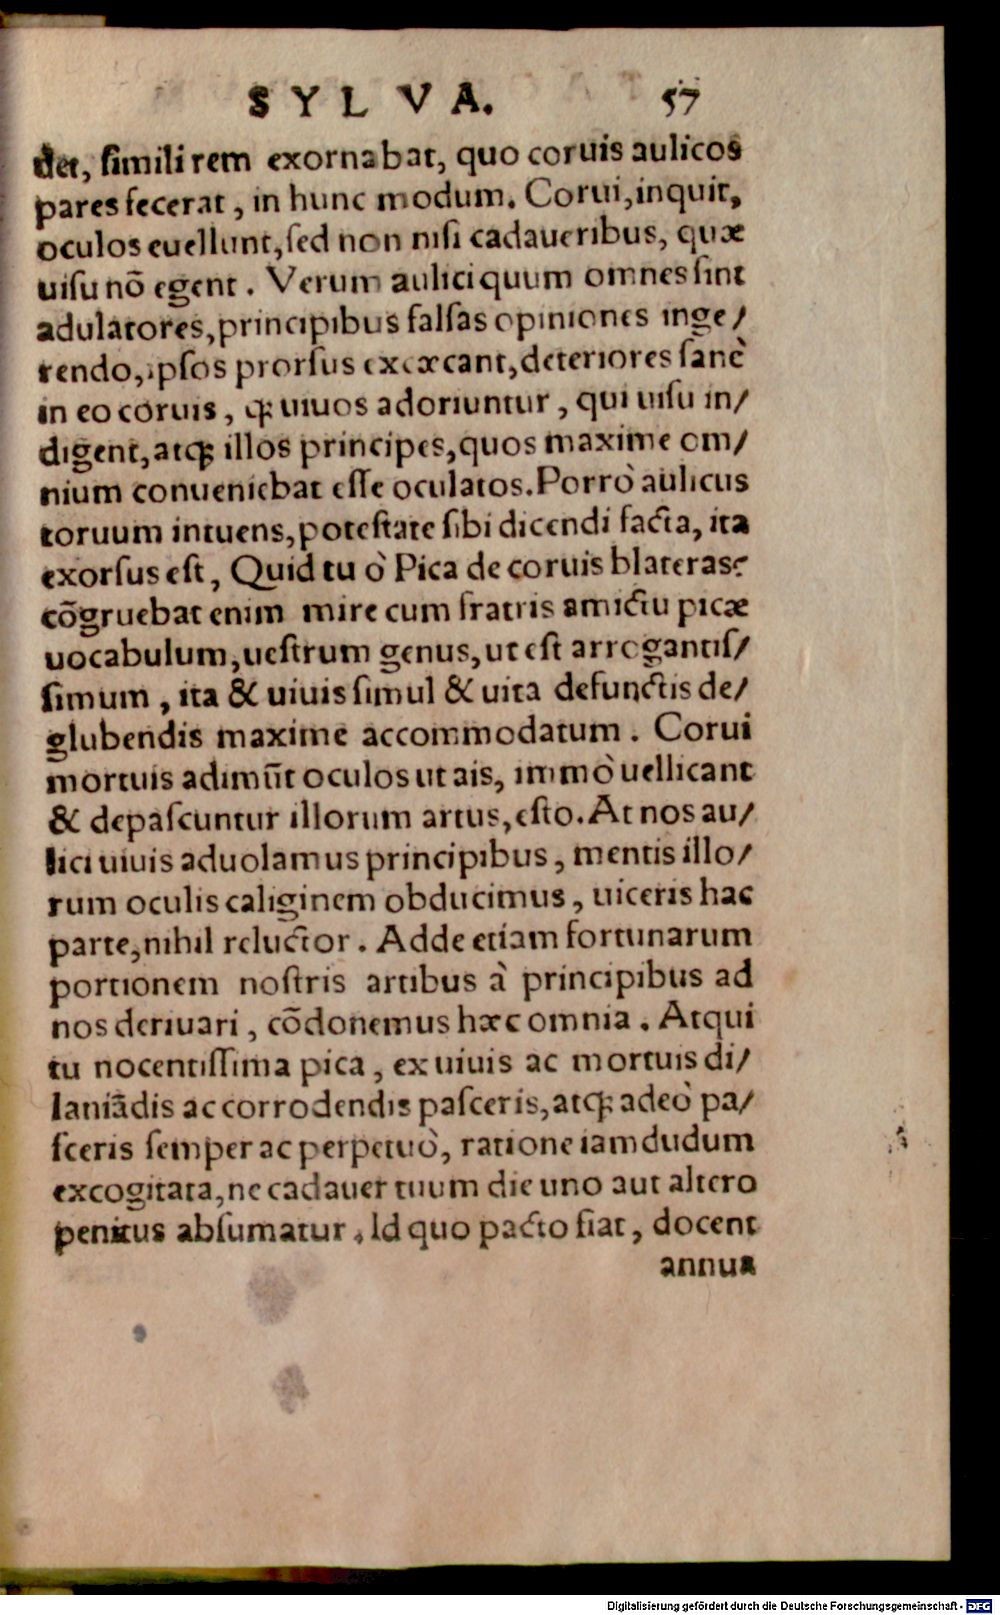 SYLVA. 57
det, simili rem exornabat, quo coruis aulicos
pares fecerat, in hunc modum. Corui, inquit,
oculos euellunt, sed non nisi cadaueribus, quæ
uisu nõ egent. Verum aulici quum omnes sint
adulatores, principibus falsas opiniones inge/
rendo, ipsos prorsus excæcant, deteriores sanè
in eo coruis, ꝙ uiuos adoriuntur, qui uisu in/
digent, atqꝫ illos principes, quos maxime om/
nium conueniebat esse oculatos. Porrò aulicus
toruum intuens, potestate sibi dicendi facta, ita
exorsus est, Quid tu ò Pica de coruis blateras?
cõgruebat enim mire cum fratris amictu picæ
uocabulum, uestrum genus, ut est arrogantis/
simum, ita & uiuis simul & uita defunctis de/
glubendis maxime accommodatum. Corui
mortuis adimũt oculos ut ais, immò uellicant
& depascuntur illorum artus, esto. At nos au/
lici uiuis aduolamus principibus, mentis illo/
rum oculis caliginem obducimus, uiceris hac
parte, nihil reluctor. Adde etiam fortunarum
portionem nostris artibus à principibus ad
nos deriuari, cõdonemus hæc omnia. Atqui
tu nocentissima pica, ex uiuis ac mortuis di/
laniãdis ac corrodendis pasceris, atqꝫ adeò pa/
sceris semper ac perpetuò, ratione iamdudum
excogitata, ne cadauer tuum die uno aut altero
penitus absumatur. Id quo pacto fiat, docent
annua
Digitalisierung gefördert durch die Deutsche Forschungsgemeinschaft - DFG